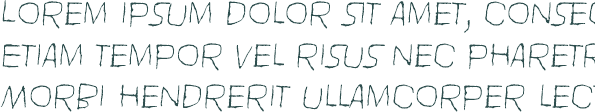 LOREM IPSUM DOLOR SIT AMET, CONSEC
ETIAM TEMPOR VEL RISUS NEC PHARETR
MORBI HENDRERIT ULLAMCORPER LEC